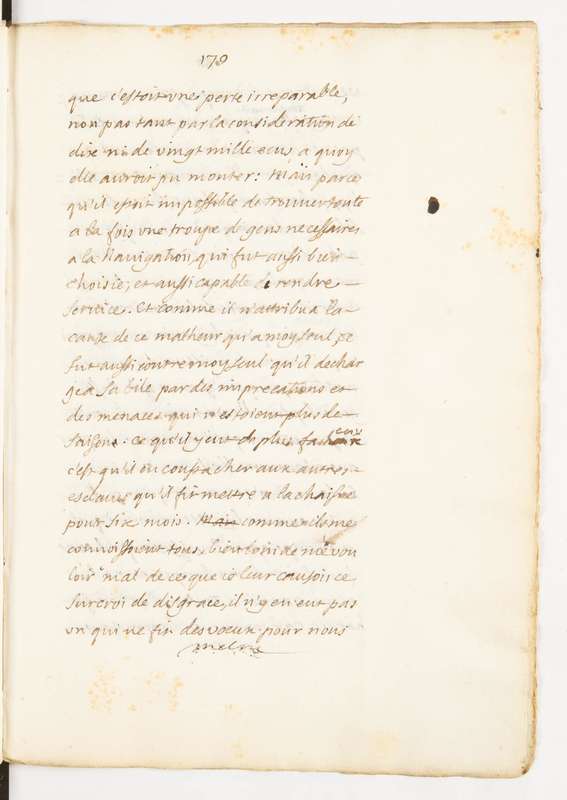 178
que c'estoit une perte irreparable,
non pas tant par la consideration de
dix ni de vingt mille ecus, a quoy
elle auroit pu monter: Mais parce
qu'il estoit impossible de trouver toute
a la fois une troupe de gens necessaires
a la Navigation, qui fut aussi bien
choisie, et aussi capable de rendre
service. Et comme il n'attribua la
cause de ce malheur qu'a moy seul ce
fut aussi contre moy seul qu'il dechar
gea sa bile par des imprecations et
des menaces qui n'estoient plus de
saison. Ce qu'il y eut de plus facheux
c'est qu'il en cousta cher aux autres
esclaves qu'il fit mettre a la chaisne
pour six mois. Mais comme ils me
connoissoient tous, bien loin de me vou
loir mal de ce que je leur causois ce
surcroi de disgrace, il n'y en eut pas
un qui ne fit des voeux pour nous